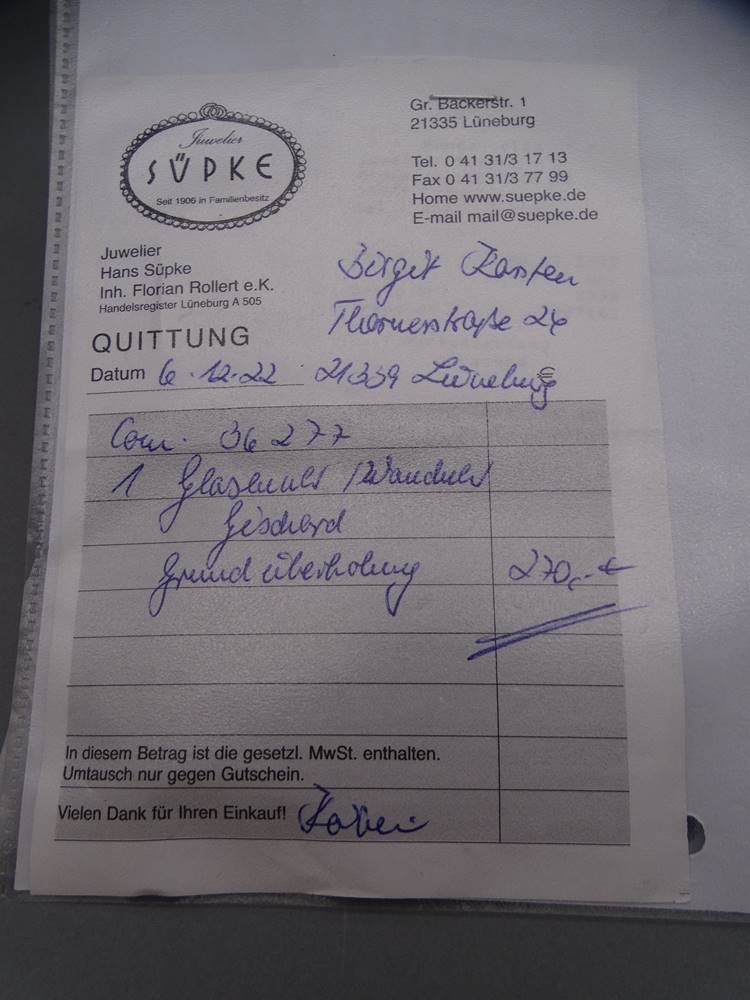 Juwelier
SÜPKE
Seit 1906 in Familienbesitz
Gr. Bäckerstr. 1
21335 Lüneburg
Tel. 0 41 31/3 17 13
Fax 0 41 31/3 77 99
Home www.suepke.de
E-mail mail@suepke.de
Juwelier
Hans Süpke
Inh. Florian Rollert e.K.
Handelsregister Lüneburg A 505
Birgit
Thornerstraße 26
QUITTUNG
Datum 6.12.22
21339 Lüneburg
€
Com. 36277
1 /Wanduhr
Grundüberholung 270,-€
In diesem Betrag ist die gesetzl. MwSt. enthalten.
Umtausch nur gegen Gutschein.
Vielen Dank für Ihren Einkauf!